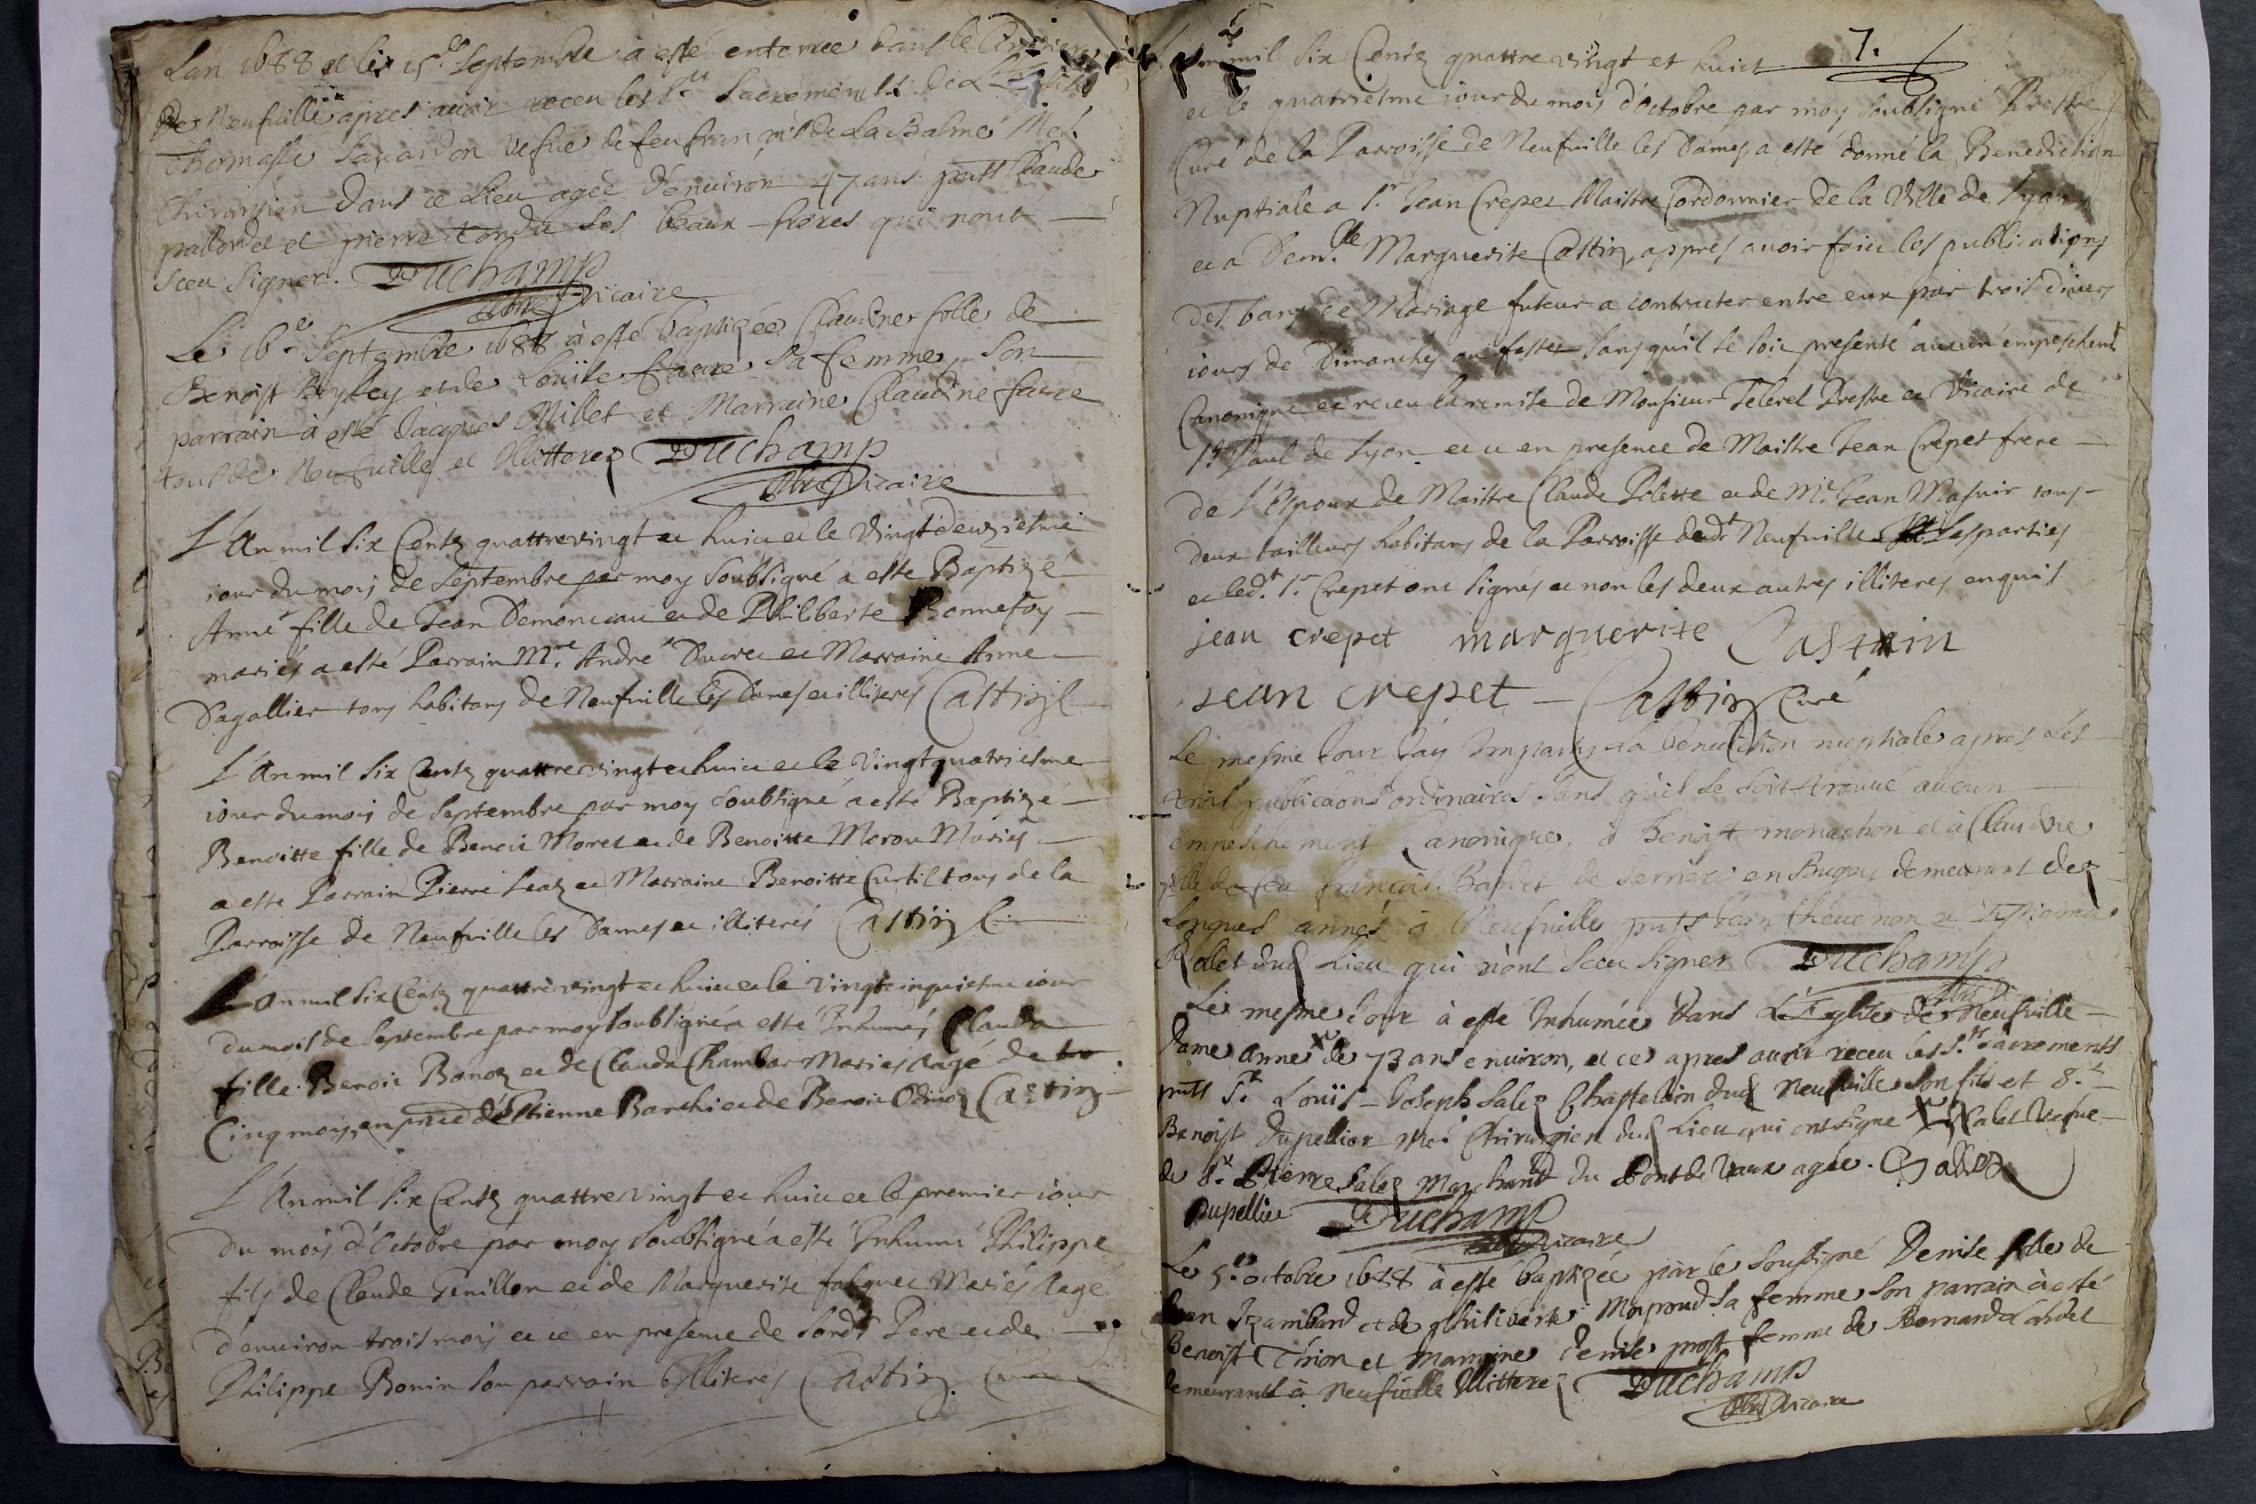 Lan 1688 et le 15.e Septembre à esté enterrée dans le Cimitiere
De Neufville apres avoir receu les Sts Sacrements de L'Eglise
Thomasse Savardon vefve de feu françois de La Balme Me
Chirurgien dans ce Lieu agée d'environ 47 ans pntt Claude
et pierre tondu ses beaux-freres qui nont
sceu signer. Duchamp
Vicaire
Le 16.e Septembre 1688 à esté baptizée Claudine fille de
Benoist et de Louise favre sa femme, Son
parrain à esté Jacques Millet et Marraine Claudine favre
tous de Neufville et Illitterez Duchamp
Vicaire
L'An mil six Centz quattrevingt et huict et le Vingtdeuxiesme
iour du mois de Septembre par moy soubsigné a esté Baptizé
Anne fille de Jean Demonceau et de Philiberte Bonnefoy
mariés a esté Parrain Mre. André Ducret et Marraine Anne
Dagallier tous habitans de Neufville les Dames et illiterés Castin C
L'An mil six Centz quattrevingt et huict et le Vingtquatriesme
iour du mois de Septembre par moy soubsigné a esté Baptizé
Benoitte fille de Benoit Moret et de Benoitte Morou Mariés
a esté Parrain Pierre et Marraine Benoitte Curtil tous de la
Parroisse de Neufville les Dames et illiterés Castin C
L'an mil six Centz quattrevingt et huict et le vingtcinquiesme iour
du mois de Septembre par moy soubsigné a esté Inhumé Clauda
fille Benoit Bonoz et de Clauda Chambar Mariés Aagé de
Cinq mois, en pnce d'Estienne Barchi et de Benoit Castin
L'An mil six Centz quattrevingt et huict et le premier iour
Du mois d'Octobre par moy soubsigné a esté Inhumé Philippe
fils de Claude Genillon et de Marguerite Mariés Aagé
d'environ trois mois et ce en presence de Sondt Pere et de
Philippe Bonin son parrain Illiterés Castin. Curé
7.
L'an mil six Centz quattrevingt et huict
et le quatriesme iour du mois d'Octobre par moy soubsigné Prestre
Curé de la Parroisse de Neufville les Dames a esté donné la Benediction
Nuptiale a Sr. Jean Crepet Maistre Cordonnier de la Ville de Lyon
et a Dem.lle Marguerite Castin, appres avoir faict les publications
des bans de Mariage futeur a contracter entre eux par trois divers
iours de Dimanches ou festes sans qu'il se soit presenté aucun empeschemt
Canonique et receu la remise de Monsieur Prestre et Vicaire de
St. Paul de Lyon et ce en presence de Maistre Jean Crepet frere
de l'Espoux de Maistre Claude et de Mre. Jean Masuir tous
deux tailleurs habitans de la Parroisse dudt Neufville Les parties
et ledt. Sr. Crepet ont signés et non les deux autres illiteres enquis
jean crepet marguerite Castain
jean crepet Castin Curé
Le mesme Jour Jay Imparty La benediction nuptiale apres Les
trois publicaons ordinaires sans qu'il se soit trouvé aucun
empeschement Canonique, à Benoist monachon et à Claudine
fille de feu françois Bardet de en Bugey demeurant de
Longues annés à Neufville pntts Jean Thevenon et
Rollet dud Lieu qui n'ont sceu signer Duchamp
Le mesme Jour à esté Inhumée dans L'Eglise de Neufville
Dame Anne x de 73 ans environ, et ce apres avoir receu les Sts Sacrements
pntts Sr. Louis-Joseph Salez Chastelain dud Neufville son fils et Sr.
Benoist Dupellier Me Chirurgien dud Lieu qui ont signé x Valet Vefve
de Sr. Pierre Salez Marchand du Pont de Vaux agée. Sallez
Dupellier Duchamp
Vicaire
Le 5.e Octobre 1688 à esté baptizée par le soussigné Denise fille de
Jean Izambard et de philiberte Monpoud sa femme son parrain à esté
Benoist Thion et marraine Denise prost femme de Bernard
demeurants à Neufville Illitterez Duchamp
Vicaire